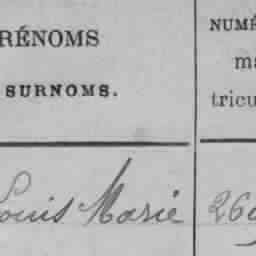 RÉNOMS
SURNOMS.
Louis Marie
NUMÉ
ma
tricu